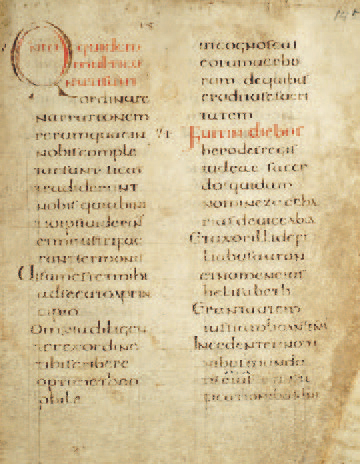 quidem
ordinare
narrationem
rerum quae in
nobis comple
tae sunt sicut
tradiderunt
nobis qui ab ini
et ministri fue
runt sermonis
Uisum est et mihi
adsecuto a prin
cipio
Omnia diligen
ter ex ordine
tibi scribere
optime theo
phile
ut cognoscas
eorum uerbo
rum de quibus
tatem
Fuit in diebus
herodes regis
iudeae sacer
dos quidam
nomine zacha
rias de uice abia
Et uxor illi de fi
liabus aaron
et nomen eius
helisabeth
Erant autem
iusti ambo
Incedentes in om
nibus manda